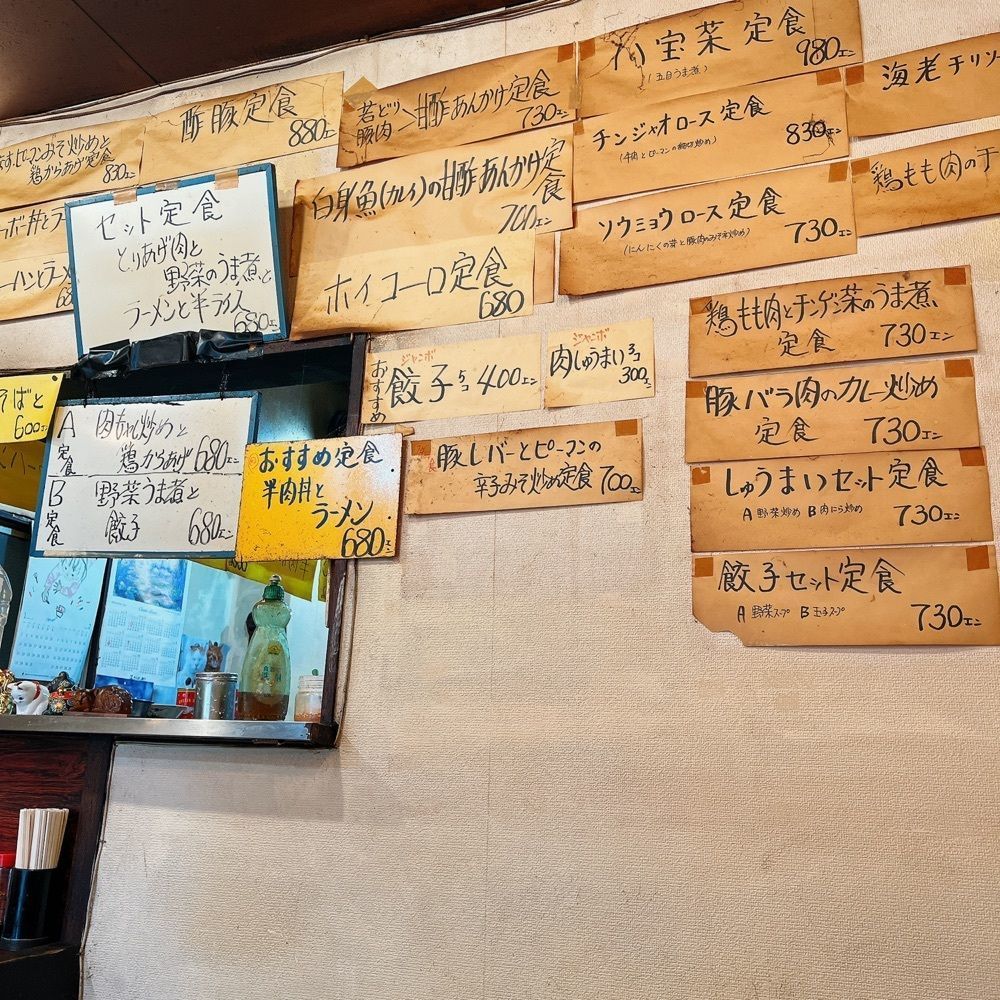 酢豚定食
880エン
みそ炒めと
鶏からあげ定食
830エン
若どり
豚肉
甘酢あんかけ定食
730エン
八宝菜定食
(五目うま煮)
980エン
チンジャオロース定食
(牛肉とピーマンの細切炒め)
830エン
海老チリソ
白身魚(カレイ)の甘酢あんかけ定
食
700エン
ホイコーロ定食
680
ソウミョウロース定食
730エン
鶏もも肉の
セット定食
とりあげ肉と
野菜のうま煮と
ラーメンと半ライス
680エン
鶏もも肉とチンゲン菜のうま煮
定食
730エン
おすすめ
ジャンボ
餃子5コ400エン
ジャンボ
肉しゅうまい3コ
300エン
そばと
600エン
A定食
肉もやし炒めと
鶏からあげ 680エン
B定食
野菜うま煮と
餃子
680エン
おすすめ定食
半肉丼と
ラーメン
680エン
豚レバーとピーマンの
辛子みそ炒め定食 700エン
豚バラ肉のカレー炒め
定食
730エン
しゅうまいセット定食
A 野菜炒め B 肉にら炒め
730エン
餃子セット定食
A 野菜スープ B 玉子スープ
730エン